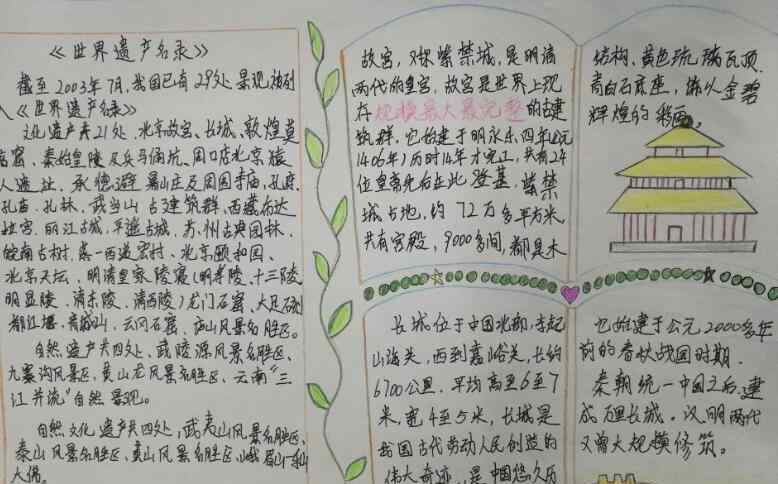 《世界遗产名录》
截至2003年7月,我国已有29处景观被列
入《世界遗产名录》
文化遗产共21处,北京故宫、长城、敦煌莫
高窟、秦始皇陵及兵马俑坑、周口店北京猿
人遗址、承德避暑山庄及周围寺庙、孔府、
孔庙、孔林、武当山古建筑群、西藏布达
拉宫、丽江古城、平遥古城、苏州古典园林、
皖南古村、西递宏村、北京颐和园、
北京天坛、明清皇家陵寝(明孝陵、十三陵
明显陵、清东陵、清西陵)龙门石窟、大足石刻
都江堰、青城山、云冈石窟、庐山风景名胜区。
自然遗产共四处、武陵源风景名胜区、
九寨沟风景区、黄山龙风景名胜区、云南“三
江并流”自然景观。
自然文化遗产共四处,武夷山风景名胜区、
泰山风景名胜区、黄山风景名胜区、峨眉山—乐山
大佛。
故宫,又称紫禁城,是明清
两代的皇宫,故宫是世界上现
存规模最大最完整的古建
筑群,它始建于明永乐四年(公元
1406年)历时14年才完工,共有24
位皇帝先后在此登基,紫禁
城占地,约72万多平方米,
共有宫殿,9000多间,都是木
结构、黄色琉璃瓦顶、
青白石底座,饰以金碧
辉煌的彩画。
长城位于中国北部,东起
山海关,西到嘉峪关,长约
6700公里.平均高至6至7
米,宽4至5米,长城是
我国古代劳动人民创造的
伟大奇迹,是中国悠久历
它始建于公元2000多年
前的春秋战国时期.
秦朝统一中国之后,建
成万里长城。汉明两代
又曾大规模修筑。